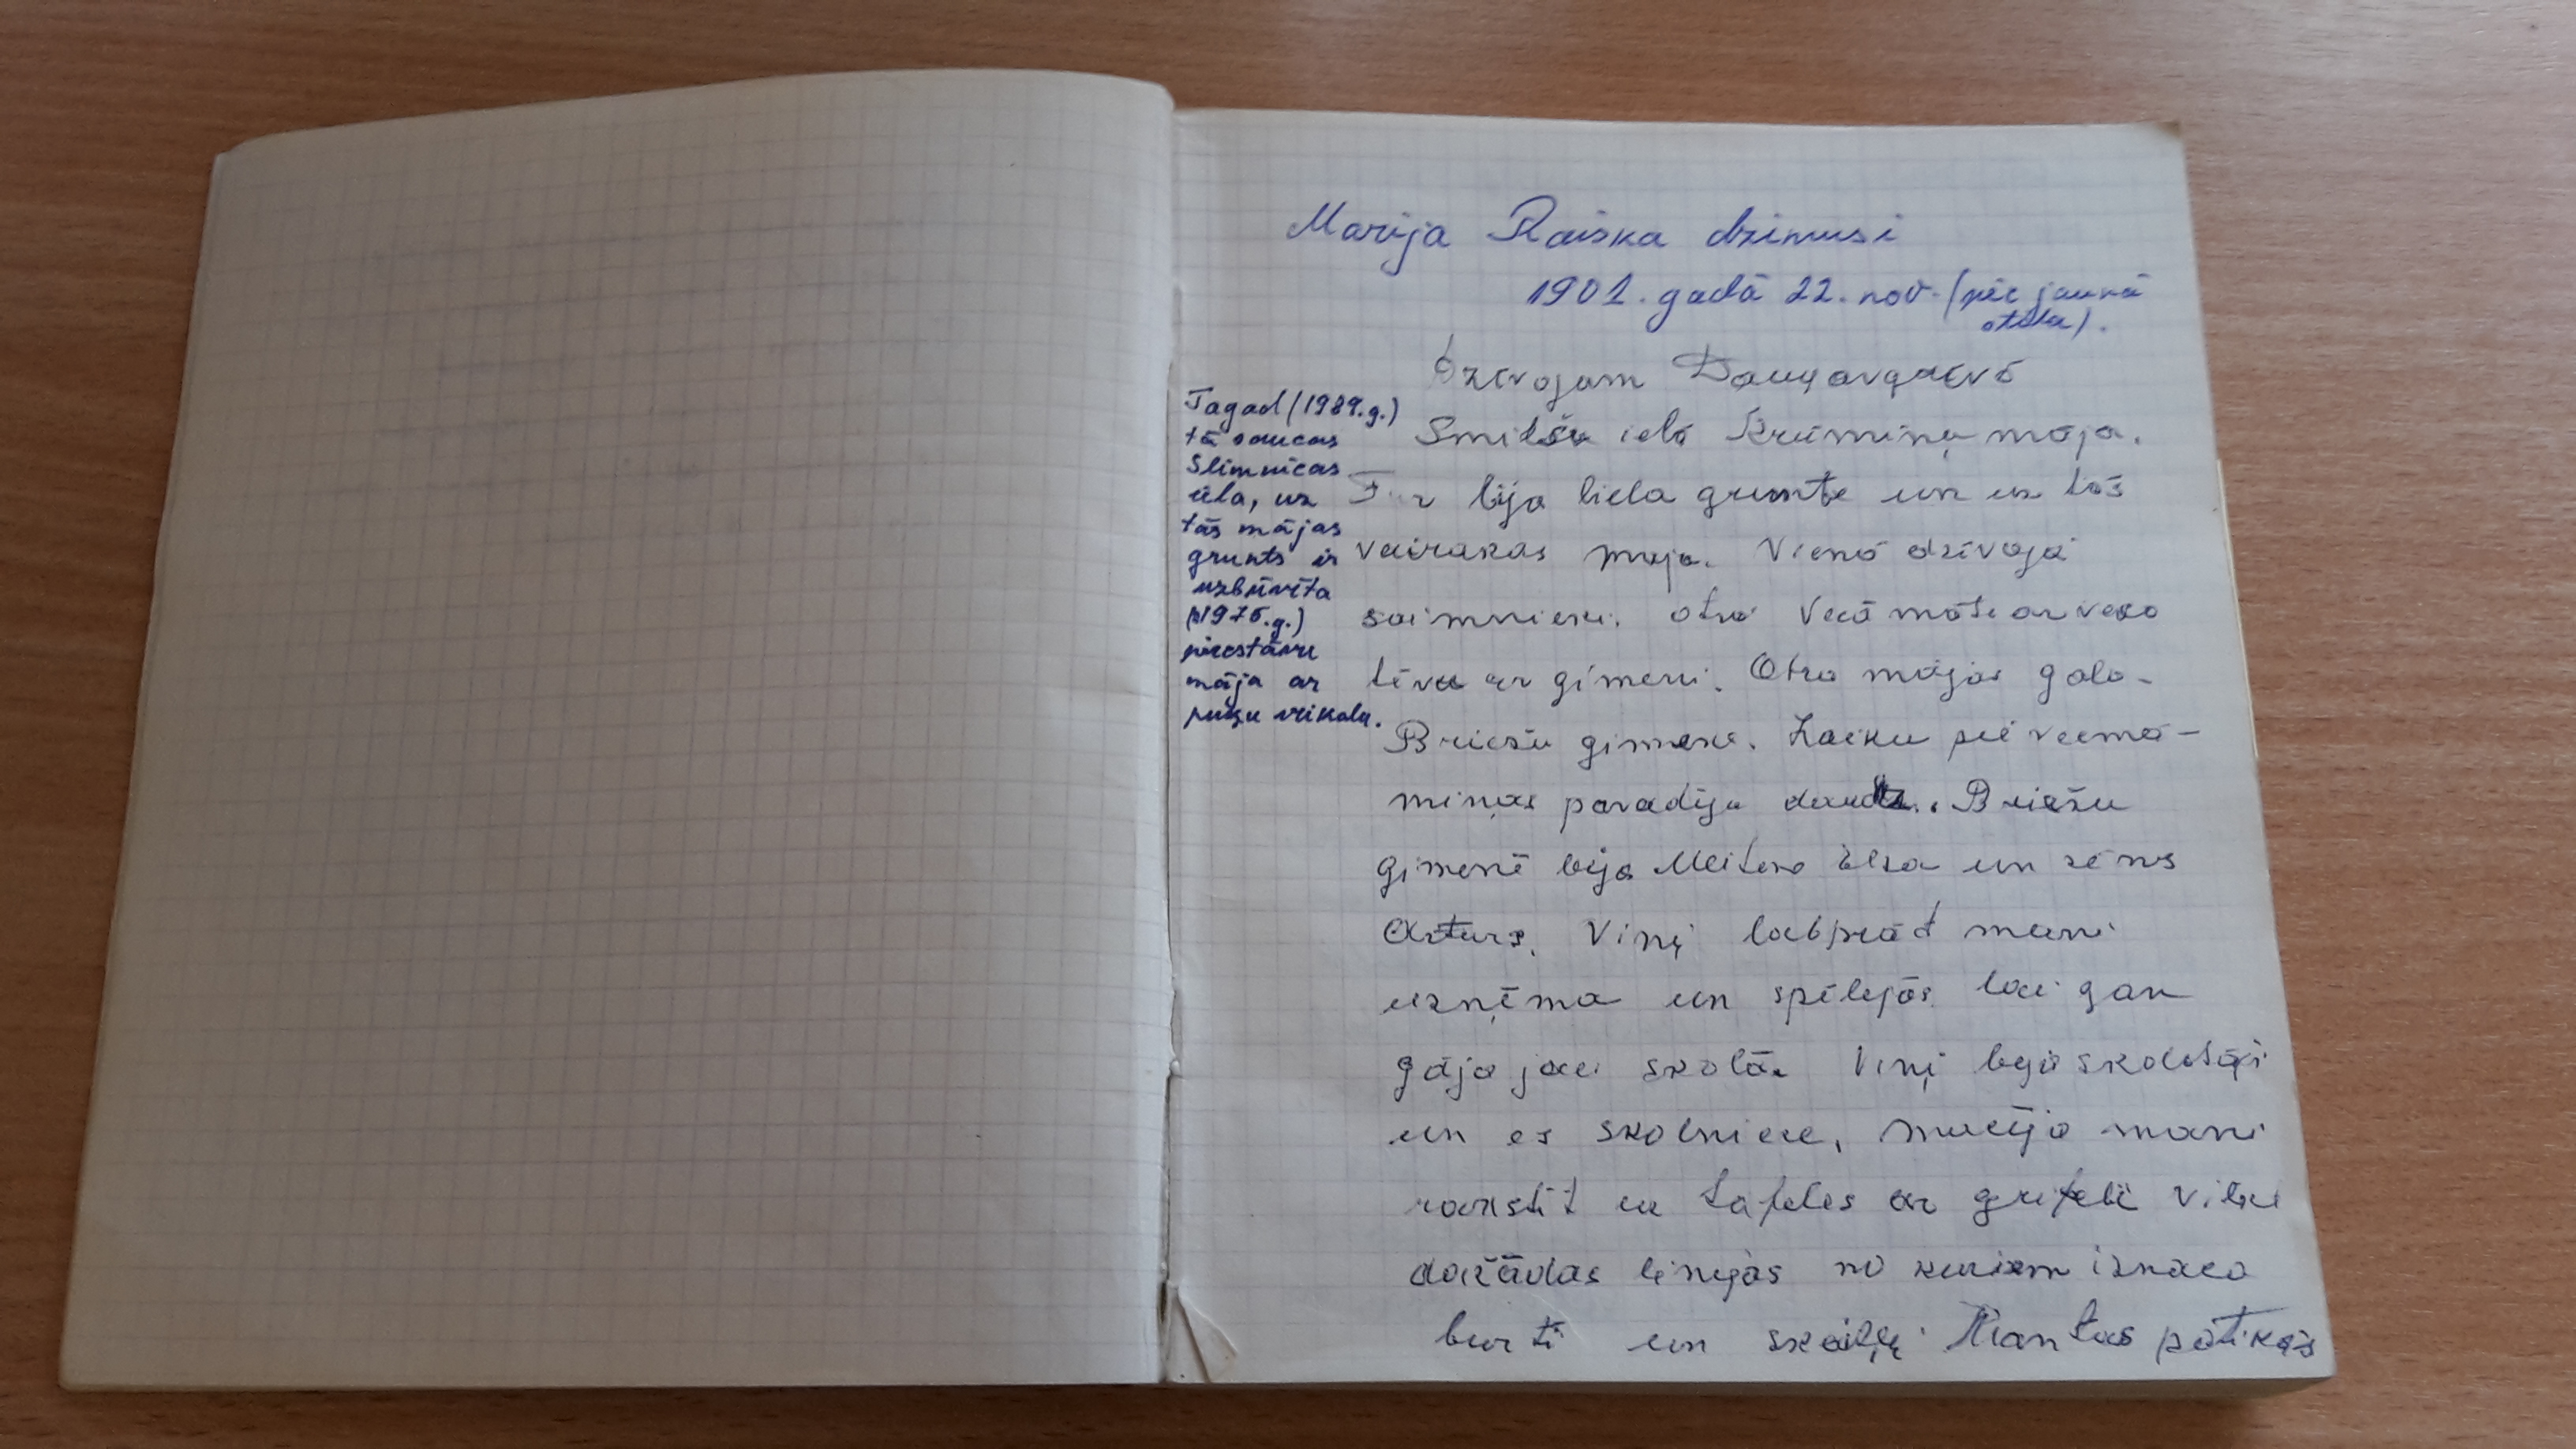 Marija Raiska dzimusi
1901. gadā 22. nov. (pēc jaunā
stila).
Dzīvojam Daugavgrīvā
Smilšu ielā Krūmiņu māja.
Tur bija liela grunte un uz tās
vairakas māja. Vienā dzīvoja
saimnieki. otrā Vecā māte ar veco
tēvu ar gimeni. Otra mājas galā-
Briežu gimene. Laiku pie vecmā-
miņas pavadīju daudz. Briežu
gimenē bija Meitene Elza un zēns
Arturs. Viņi labprāt mani
uzņēma un spēlejās lai gan
gāja jau skolā. Viņi bija skolotāji
un es skolniece, mācīja mani
rakstīt uz tafeles ar grifeli vilku
dažādas linijas no kuriem iznāca
burti un skaitļi. Man tas patikās
Tagad (1989.g.)
tā saucas
Slimnīcas
iela, uz
tās mājas
grunts ir
uzbūvēta
(1975.g.)
piecstāvu
māja ar
puķu veikalu.